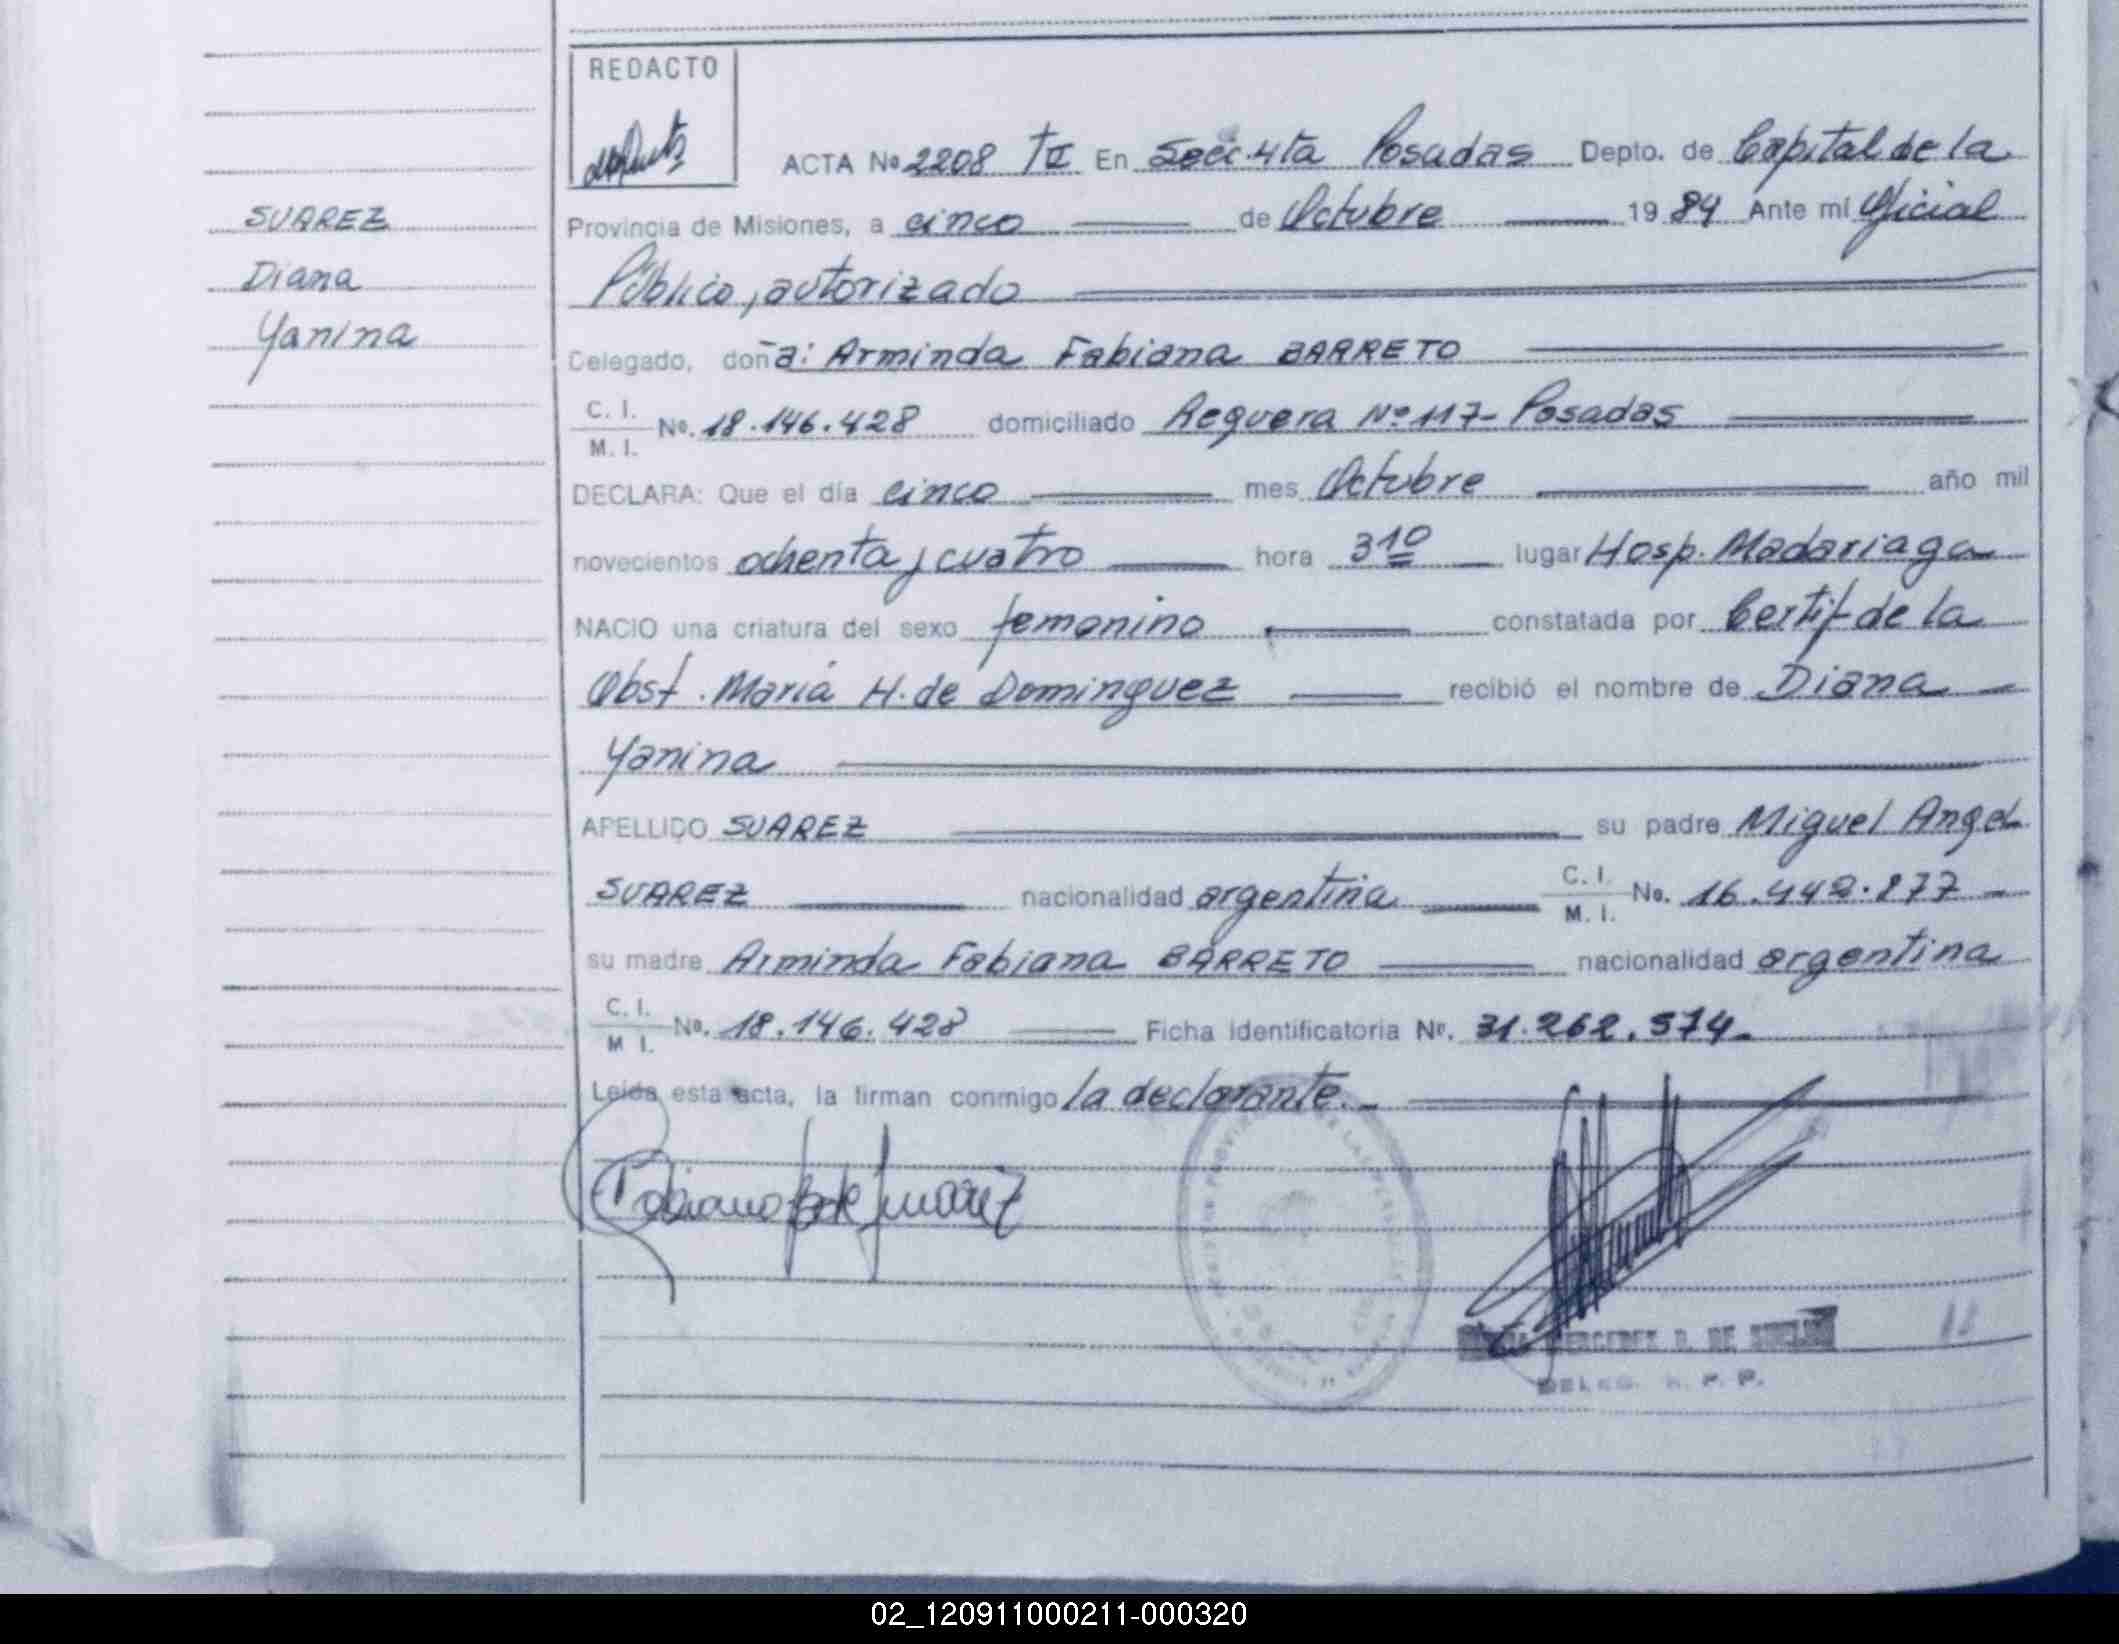 REDACTO
ACTA Nº 2208 TII En Secc. 4ta Posadas Depto. de Capital de la
Provincia de Misiones, a cinco de Octubre 19 84 Ante mí Oficial
SUAREZ
Público, autorizado
Diana
Yanina
Delegado, doña: Arminda Fabiana BARRETO
C. I.
M. I. No. 18.146.428 domiciliado Reguera Nº 117- Posadas
DECLARA: Que el día cinco mes Octubre año mil
novecientos ochenta y cuatro hora 3 10 lugar Hosp. Madariaga
NACIO una criatura del sexo femenino constatada por Certif. de la
Obst. María H. de Dominguez recibió el nombre de Diana
Yanina
APELLIDO SUAREZ su padre Miguel Angel
SUAREZ nacionalidad argentina C. I. M. I. No. 16.442.877
su madre Arminda Fabiana BARRETO nacionalidad argentina
C. I.
M. I. No. 18.146.428 Ficha Identificatoria Nº. 31.262.574.
Leída esta acta, la firman conmigo la declarante.
MERCEDES D. DE
DELEG. R. P. P.
02_120911000211-000320